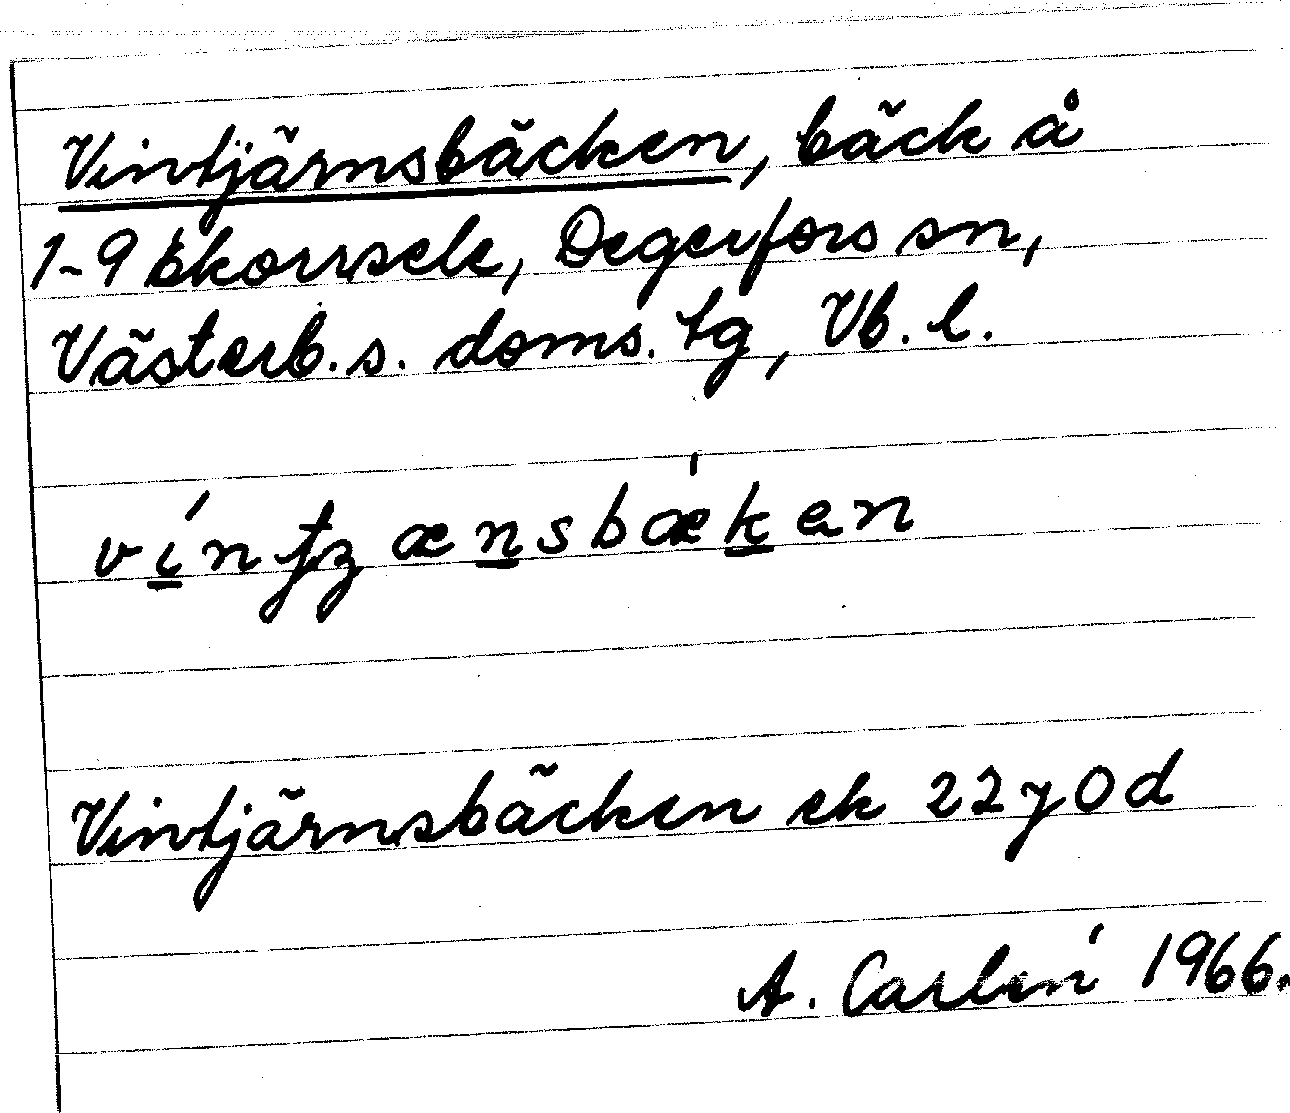 Vintjärnsbäcken, bäck å
1-9 Ekorrsele, Degerfors sn,
Västerb. s. doms. tg, Vb. l.
Vintjärnsbäcken ek 22 y 0 d
A. Carlén 1966.